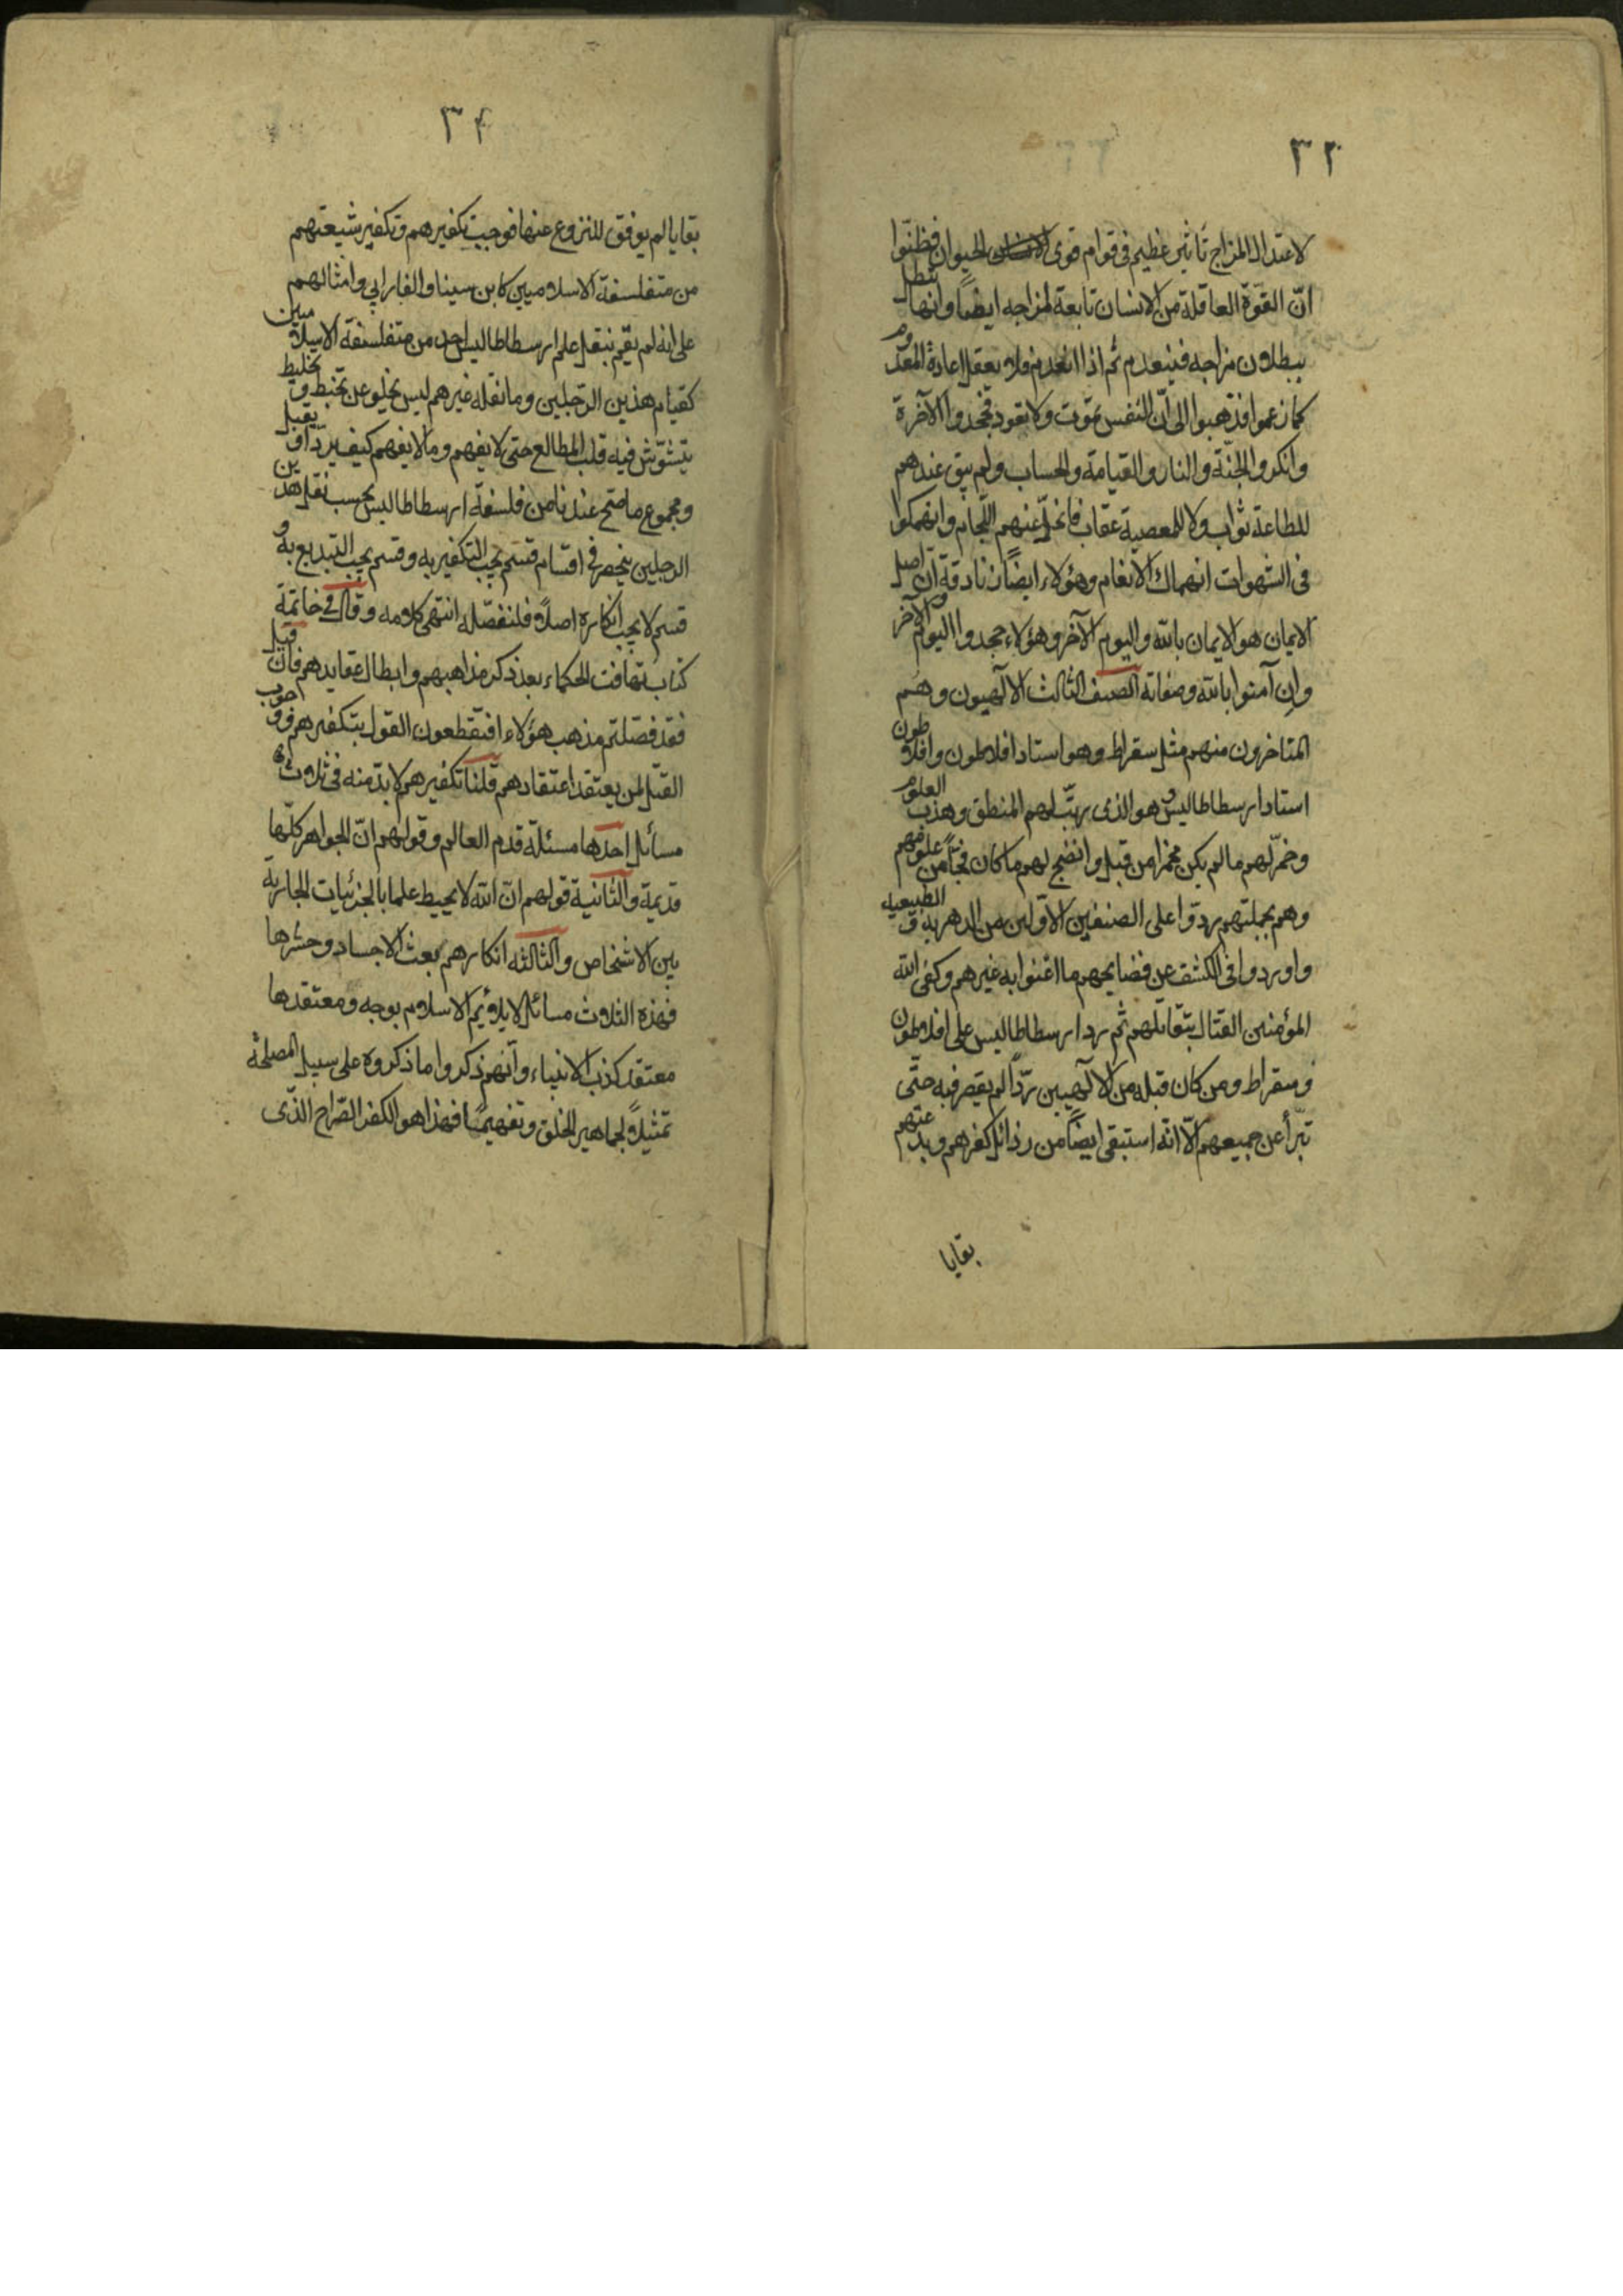 ٣٣
لاعتدال المزاج تأثير عظيم في قوام قوى الحيوان فظنّوا
انّ القوّة العاقلة من الانسان تابعة لمزاجه ايضًا وانها تبطل
ببطلان مزاجه فينعدم ثم اذا انعدم فلا يعقل اعادة المعدوم
كما زعموا فذهبوا الى انّ النفس تموت ولا تعود فجحدوا الآخرة
وانكروا الجنّة والنار والقيامة والحساب ولم يبق عندهم
للطاعة ثواب ولا للمعصية عقاب فانحلّ عنهم اللّجام وانهمكوا
فى الشهوات انهماك الانعام وهؤلاء ايضًا زنادقة لان اصل
الايمان هو الايمان بالله واليوم الآخر وهؤلاء جحدوا اليوم الآخر
وإن آمنوا بالله وصفاته الصنف الثالث الآلهيون وهم
المتاخرون منهم مثل سقراط وهو استاد افلاطون وافلاطون
استاد ارسطاطاليس وهو الذى رتّب لهم المنطق وهذب العلوم
وخمّر لهم ما لم يكن مخمرا من قبل وانضج لهم ما كان فجّاً من علومهم
وهم بجملتهم ردّوا على الصنفين الاوّلين من الدهرية والطبيعية
واوردوا فى الكشف عن فضايحهم ما اغنوا به غيرهم وكفى الله
المؤمنين القتال بتقاتلهم ثم رد ارسطاطاليس على افلاطون
وسقراط ومن كان قبله من الآلهيين ردّاً لم يقصر فيه حتّى
تبرّأ عن جميعهم الّا انّه استبقى ايضًا من رذائل كفرهم وبدعتهم
بقايا
٣٤
بقايا لم يوفق للنزوع عنها فوجب تكفيرهم وتكفير شيعتهم
من متفلسفة الاسلاميين كابن سينا والفارابي وامثالهم
على انه لم يقم بنقل علم ارسطاطاليس احد من متفلسفة الاسلاميين
كقيام هذين الرّجلين وما نقله غيرهم ليس يخلو عن تخبط وتخليط
يتشوّش فيه قلب المطالع حتى لا يفهم وما لا يفهم كيف يردّ او يقبل
ومجموع ما صحّ عندنا من فلسفة ارسطاطاليس بحسب نقل هذين
الرجلين ينحصر فى اقسام قسم يجب التكفير به وقسم يجب التبديع به و
قسم لا يجب انكاره اصلاً فلنفصّله انتهى كلامه وقال فى خاتمة
كتاب تهافت الحكماء بعد ذكر مذاهبهم وابطال عقايدهم فان قيل
فقد فصّلتم مذهب هؤلاء افتقطعون القول بتكفيرهم ووجوب
القتل لمن يعتقد اعتقادهم قلنا تكفيرهم لا بدّ منه فى ثلاثة
مسائل احدها مسئلة قدم العالم وقولهم انّ الجواهر كلّها
قديمة والثانية قولهم انّ الله لا يحيط علما بالجزئيات الجارية
بين الاشخاص والثالثه انكارهم بعث الاجساد وحشرها
فهذه الثلاث مسائل لا يلائم الاسلام بوجه ومعتقدها
معتقد كذب الانبياء وانّهم ذكروا ما ذكروه على سبيل المصلحة
تمثيلاً لجماهير الخلق وتفهيمًا فهذا هو الكفر الصّراح الذّى